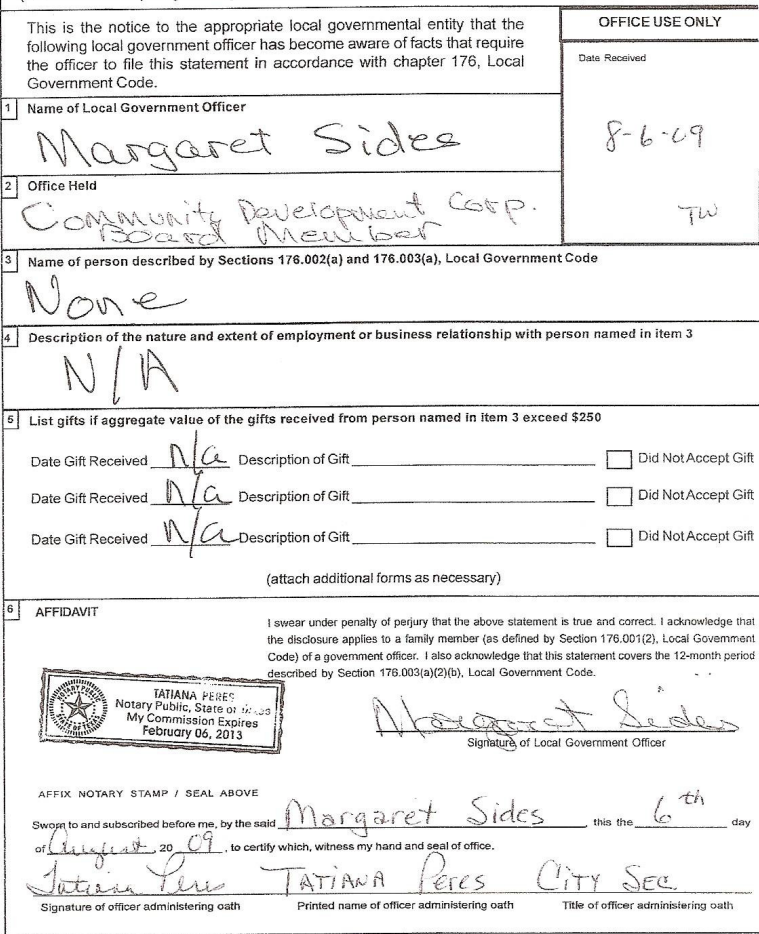 This is the notice to the appropriate local governmental entity that the
following local government officer has become aware of facts that require
the officer to file this statement in accordance with chapter 176, Local
Government Code.
OFFICE USE ONLY
Date Received
8-6-09
TW
1 Name of Local Government Officer
Margaret Sides
2 Office Held
Community Development Corp.
Board Member
3 Name of person described by Sections 176.002(a) and 176.003(a), Local Government Code
None
4 Description of the nature and extent of employment or business relationship with person named in item 3
N/A
5 List gifts if aggregate value of the gifts received from person named in item 3 exceed $250
Date Gift Received N/a Description of Gift Did Not Accept Gift
Date Gift Received N/a Description of Gift Did Not Accept Gift
Date Gift Received N/a Description of Gift Did Not Accept Gift
(attach additional forms as necessary)
6 AFFIDAVIT
I swear under penalty of perjury that the above statement is true and correct. I acknowledge that
the disclosure applies to a family member (as defined by Section 176.001(2), Local Government
Code) of a government officer. I also acknowledge that this statement covers the 12-month period
described by Section 176.003(a)(2)(b), Local Government Code.
TATIANA PERES
Notary Public, State of
My Commission Expires
February 06, 2013
Margaret Sides
Signature of Local Government Officer
AFFIX NOTARY STAMP / SEAL ABOVE
Sworn to and subscribed before me, by the said Margaret Sides, this the 6th day
of August, 20 09, to certify which, witness my hand and seal of office.
Tatiana Peres TATIANA PERES CITY SEC.
Signature of officer administering oath Printed name of officer administering oath Title of officer administering oath